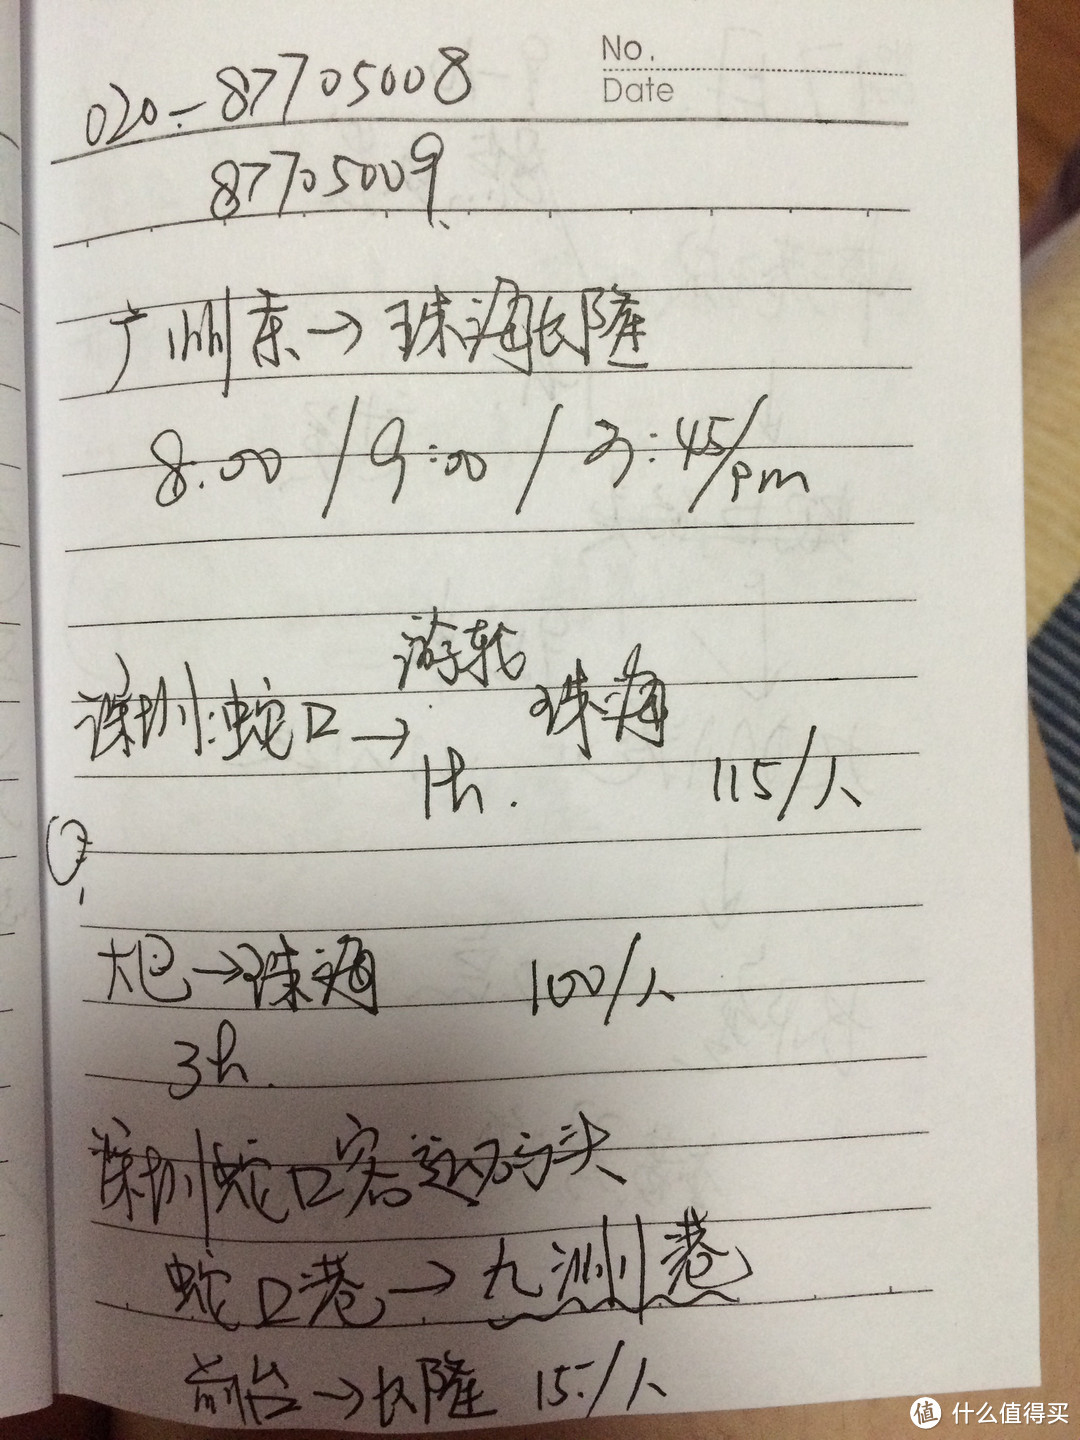 No.
Date
020-87705008
87705009
广州东→珠海长隆
8:00/9:00/3:45/pm
游轮
深圳蛇口→珠海
1h.
115/人
大巴→珠海 100/人
3h.
深圳蛇口客运码头
蛇口港→九洲港
前台→长隆 15/人
值 什么值得买